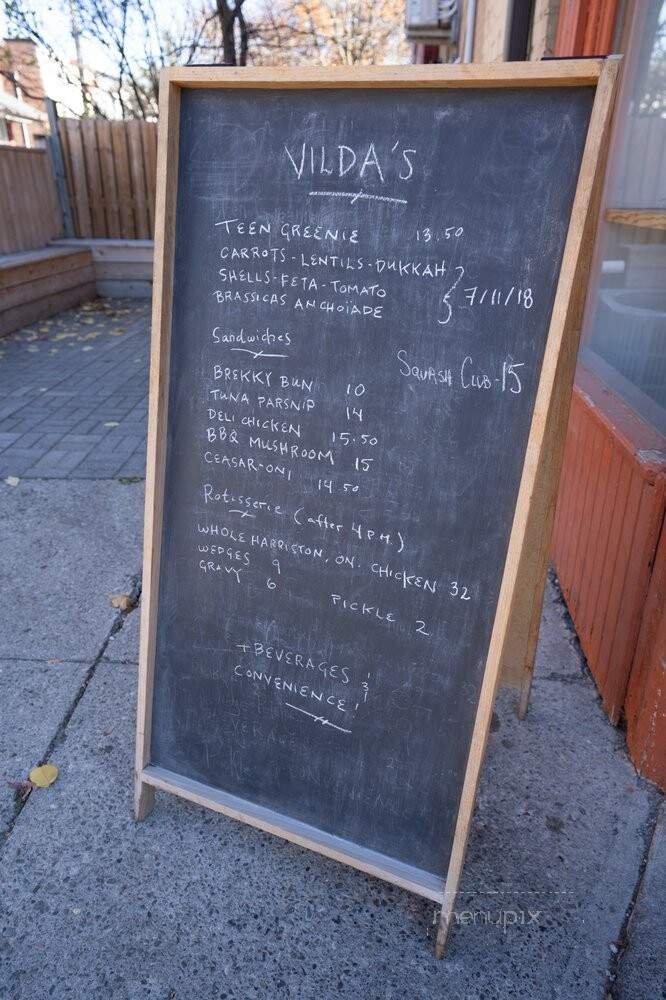 VILDA'S
TEEN GREENIE 13.50
CARROTS - LENTILS - DUKKAH
SHELLS - FETA - TOMATO } 7/11/18
BRASSICAS ANCHOÏADE
Sandwiches
SQUASH CLUB - 15
BREKKY BUN 10
TUNA PARSNIP 14
DELI CHICKEN 15.50
BBQ MUSHROOM 15
CEASAR-ONI 14.50
Rotisserie (after 4 P.M.)
WHOLE HARRISTON, ON. CHICKEN 32
WEDGES 9
GRAVY 6
PICKLE 2
+ BEVERAGES !
CONVENIENCE !
menupix